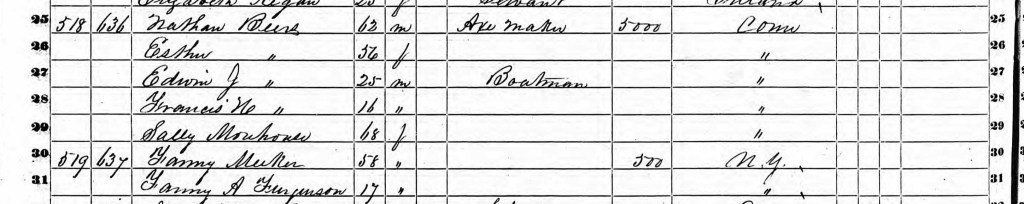 Elizabeth Regan 25 f Servant Ireland
25 518 636 Nathan Beers 62 m Axe Maker 5000 Conn 25
26 Esther " 56 f " 26
27 Edwin J " 25 m Boatman " 27
28 Francis H " 16 " " 28
29 Sally Morehouse 68 f " 29
30 519 637 Fanny Meeker 58 " 500 N.Y. 30
31 Fanny A Ferguson 17 " " 31